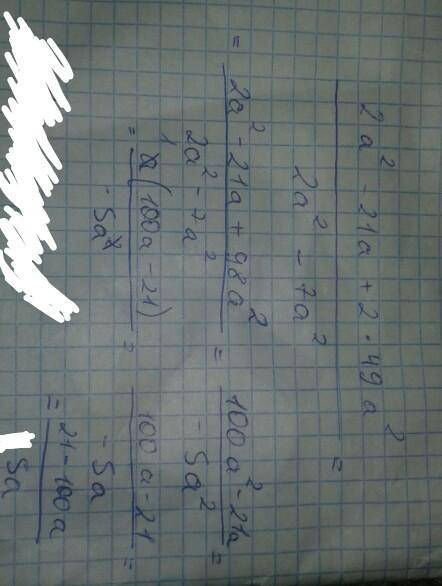 2a² - 21a + 2 · 49a² / 2a² - 7a² =
= 2a² - 21a + 98a² / 2a² - 7a² = 100a² - 21a / - 5a² =
= a(100a - 21) / - 5a² = 100a - 21 / - 5a =
= 21 - 100a / 5a